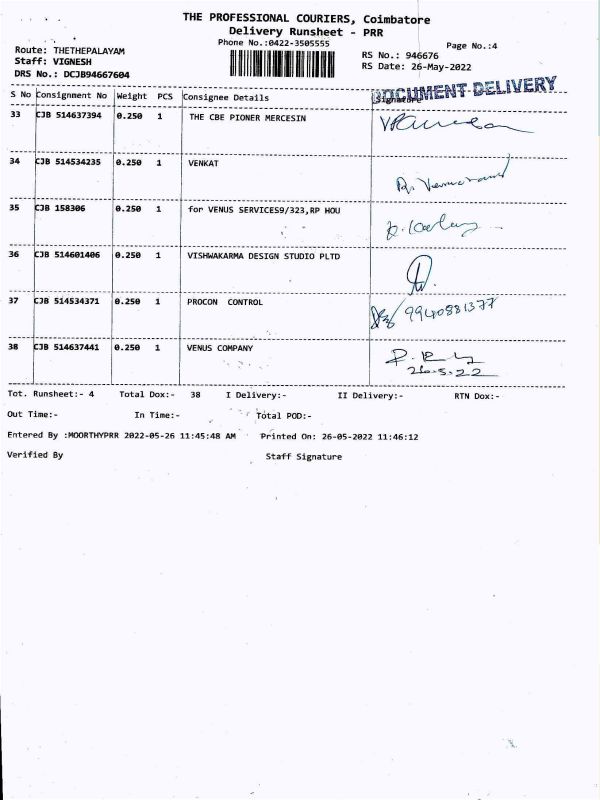 THE PROFESSIONAL COURIERS, Coimbatore
Delivery Runsheet - PRR
Phone No.:0422-3505555
Page No.:4
Route: THETHEPALAYAM
Staff: VIGNESH
DRS No.: DCJB94667604
RS No.: 946676
RS Date: 26-May-2022
DOCUMENT DELIVERY
S No Consignment No Weight PCS Consignee Details Signature
33 CJB 514637394 0.250 1 THE CBE PIONER MERCESIN
34 CJB 514534235 0.250 1 VENKAT
35 CJB 158306 0.250 1 for VENUS SERVICES9/323,RP HOU
36 CJB 514601406 0.250 1 VISHWAKARMA DESIGN STUDIO PLTD
37 CJB 514534371 0.250 1 PROCON CONTROL 9940881377
38 CJB 514637441 0.250 1 VENUS COMPANY
26.5.22
Tot. Runsheet:- 4 Total Dox:- 38 I Delivery:- II Delivery:- RTN Dox:-
Out Time:- In Time:- Total POD:-
Entered By :MOORTHYPRR 2022-05-26 11:45:48 AM Printed On: 26-05-2022 11:46:12
Verified By Staff Signature